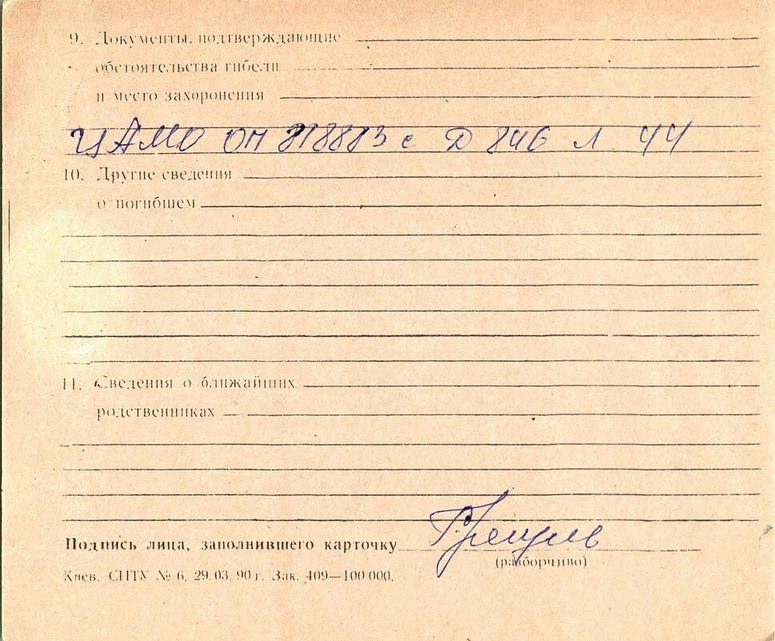 9. Документы, подтверждающие
обстоятельства гибели
и место захоронения
ЦАМО ОП 818883 с Д 846 Л 44
10. Другие сведения
о погибшем
11. Сведения о ближайших
родственниках
Подпись лица, заполнившего карточку
(разборчиво)
Киев. СПТУ № 6, 29.03.90 г. Зак. 409—100 000.